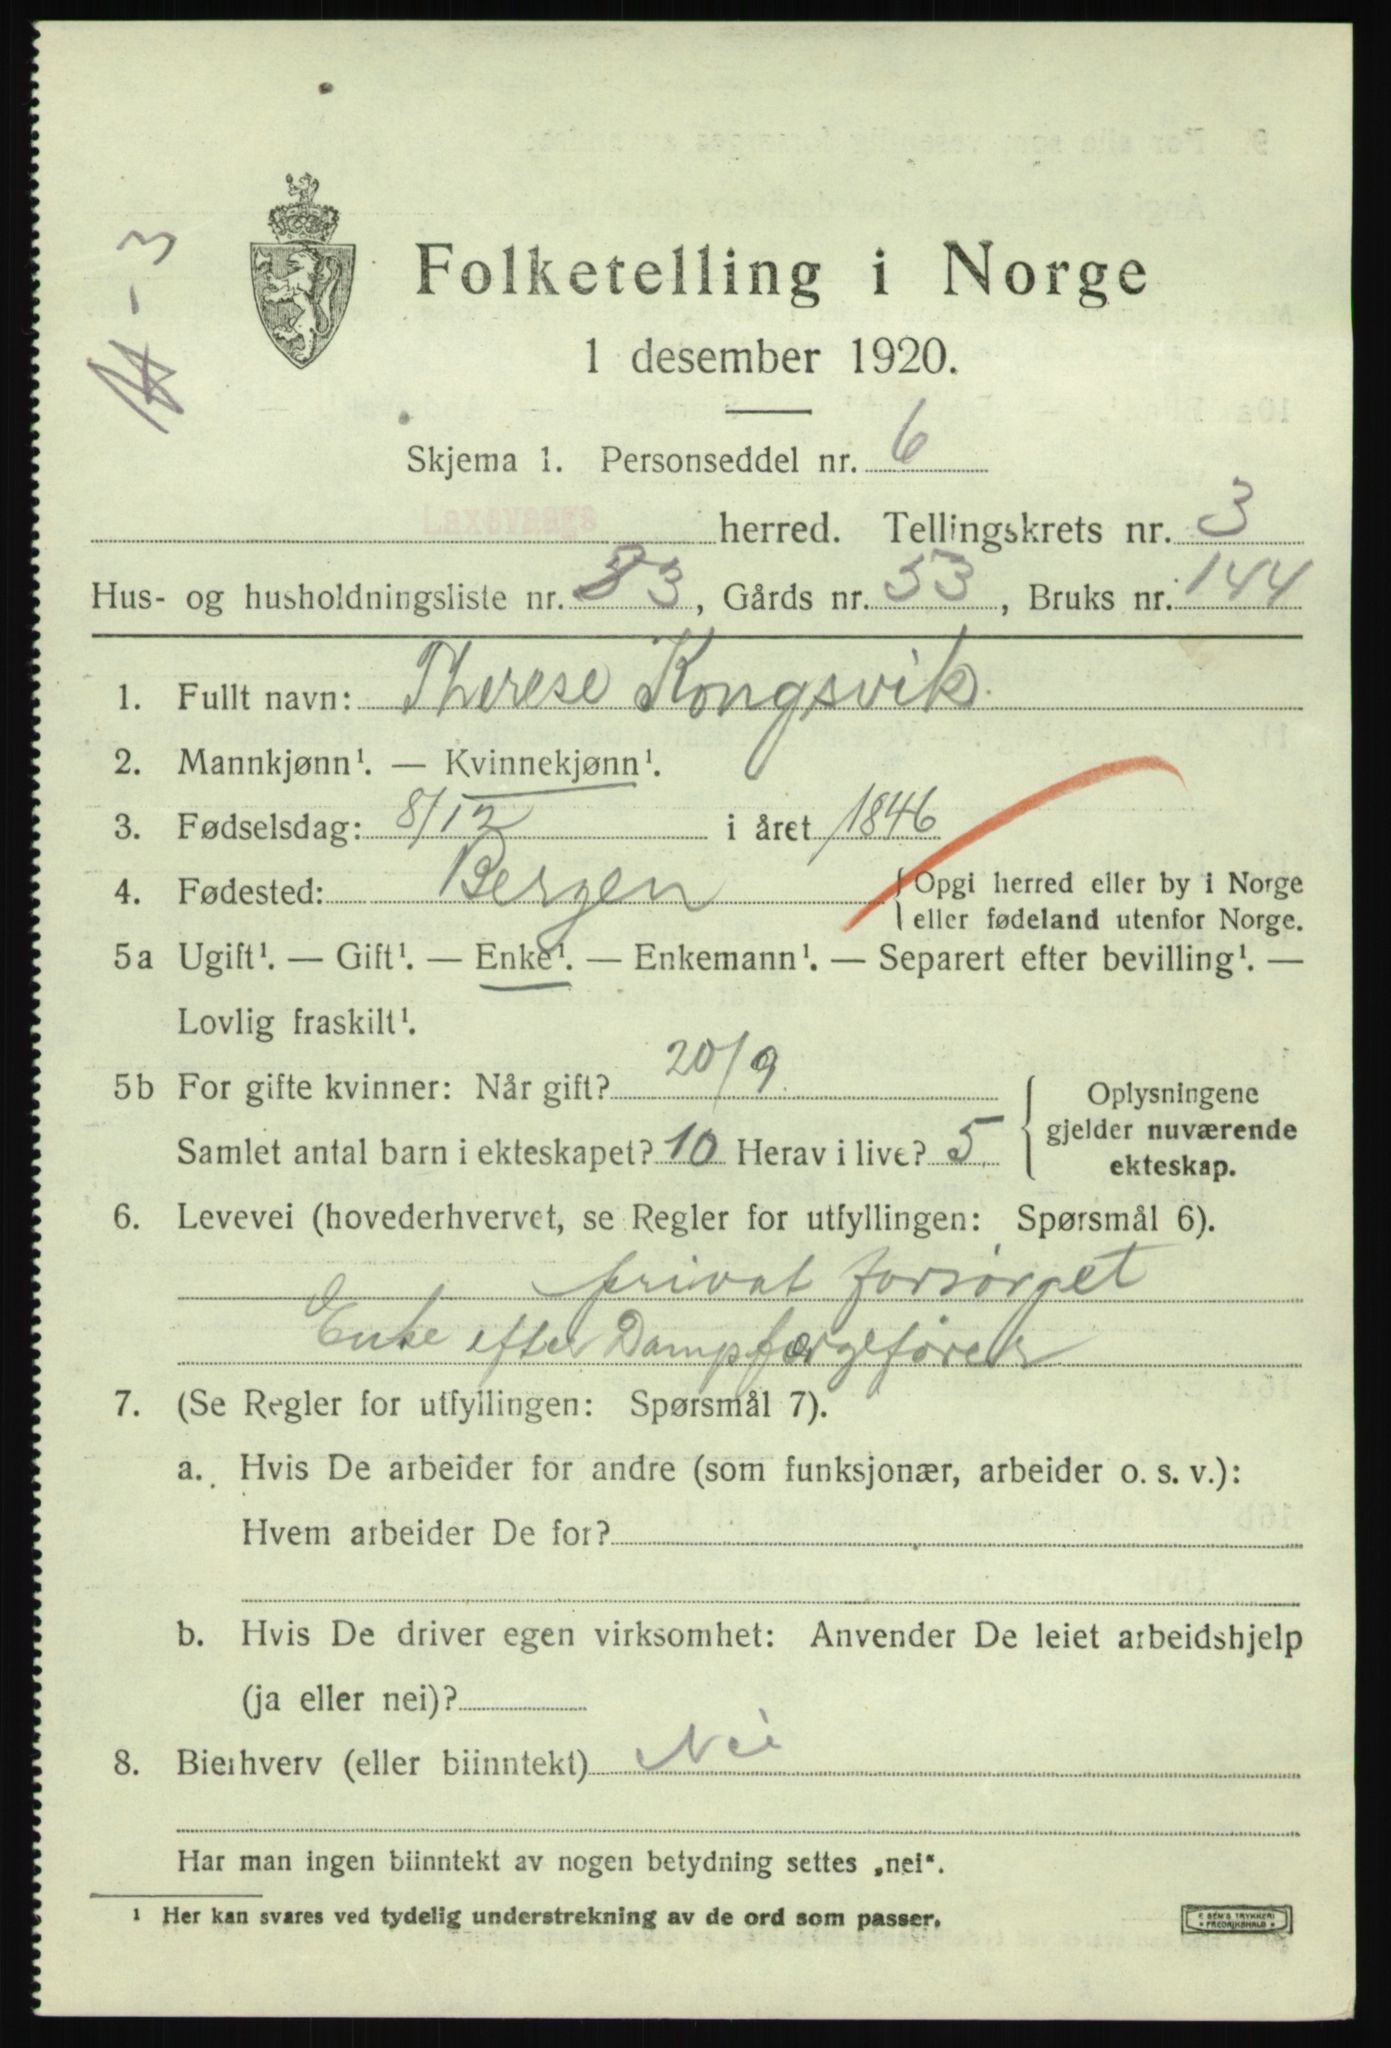 Folketelling i Norge
1 desember 1920.
Skjema 1. Personseddel nr. 6
Laxevaags herred. Tellingskrets nr. 3
Hus- og husholdningsliste nr. 33, Gårds nr. 53, Bruks nr. 144
1. Fullt navn: Therese Kongsvik
2. Mannkjønn¹. — Kvinnekjønn¹.
3. Fødselsdag: 8/12 i året 1846
4. Fødested: Bergen { Opgi herred eller by i Norge
eller fødeland utenfor Norge.
5a Ugift¹. — Gift¹. — Enke¹. — Enkemann¹. — Separert efter bevilling¹. —
Lovlig fraskilt¹.
5b For gifte kvinner: Når gift? 20/9
Samlet antal barn i ekteskapet? 10 Herav i live? 5
Oplysningene
gjelder nuværende
ekteskap.
6. Levevei (hovederhvervet, se Regler for utfyllingen: Spørsmål 6).
privat forsørget
Enke efter Dampfærgefører
7. (Se Regler for utfyllingen: Spørsmål 7).
a. Hvis De arbeider for andre (som funksjonær, arbeider o. s. v.):
Hvem arbeider De for?
b. Hvis De driver egen virksomhet: Anvender De leiet arbeidshjelp
(ja eller nei)?
8. Bierhverv (eller biinntekt) Nei
Har man ingen biinntekt av nogen betydning settes „nei“.
¹ Her kan svares ved tydelig understrekning av de ord som passer.